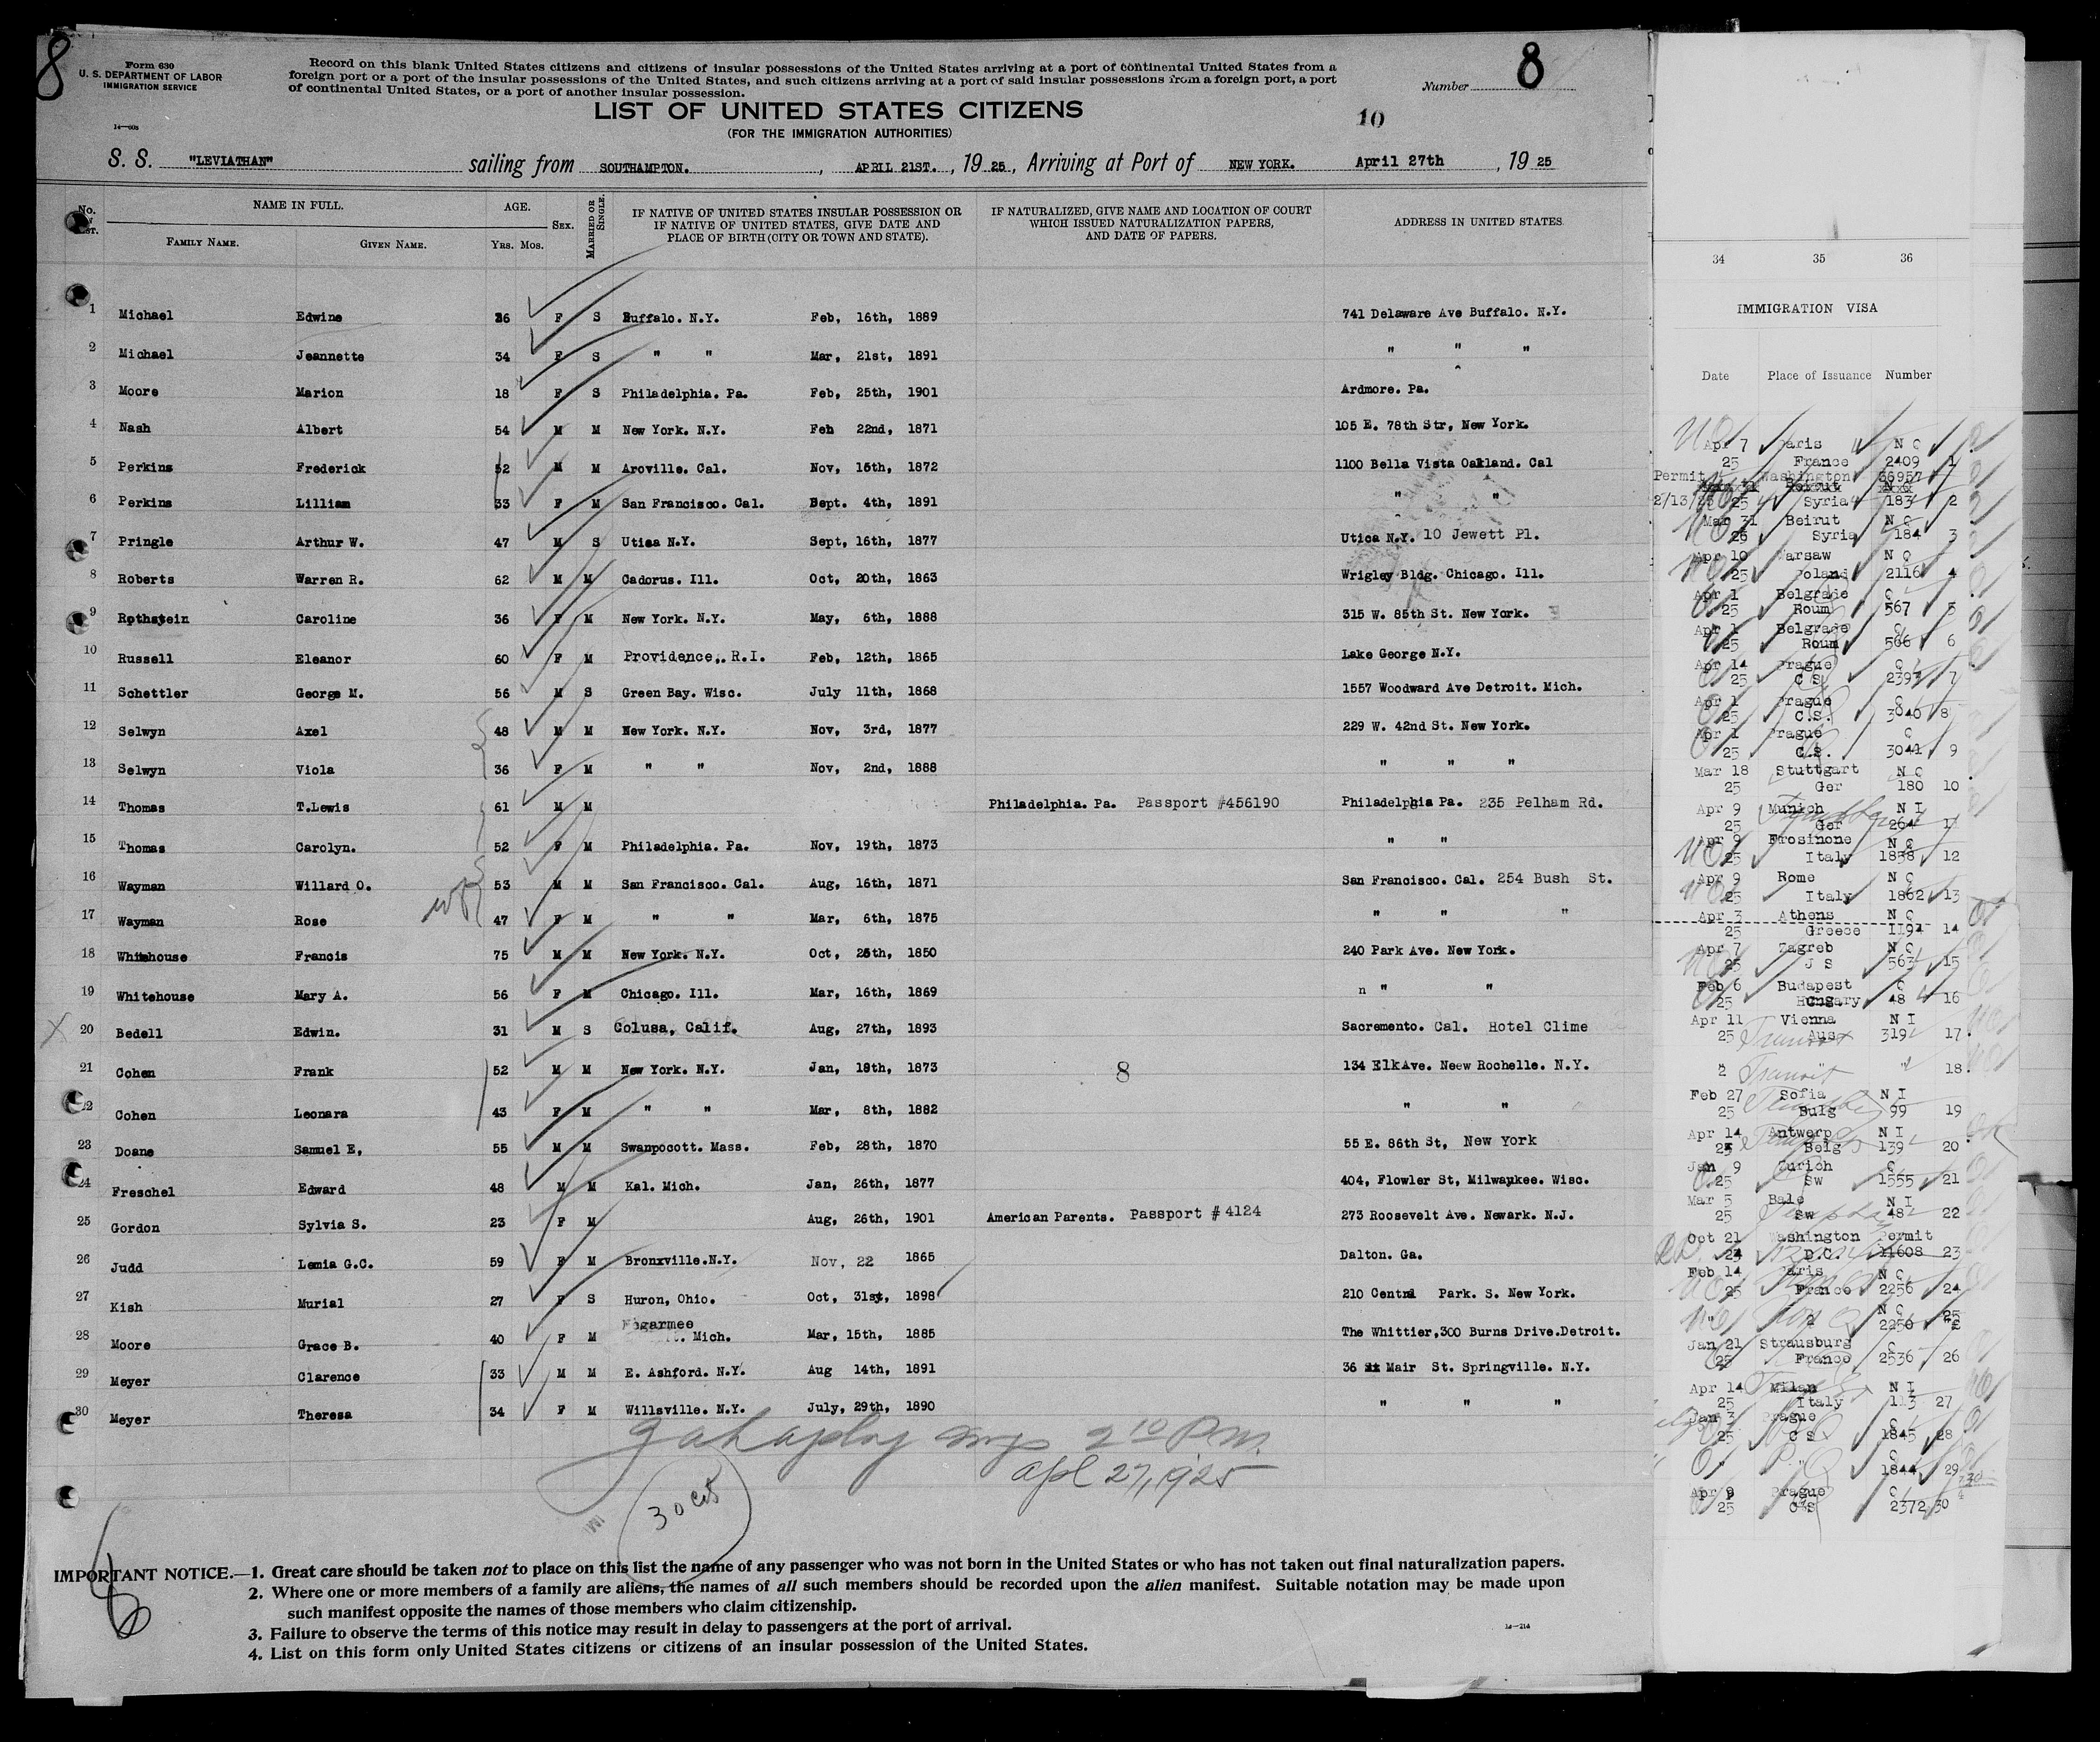 8
Form 630
U. S. DEPARTMENT OF LABOR
IMMIGRATION SERVICE
Record on this blank United States citizens and citizens of insular possessions of the United States arriving at a port of continental United States from a
foreign port or a port of the insular possessions of the United States, and such citizens arriving at a port of said insular possessions from a foreign port, a port
of continental United States, or a port of another insular possession.
Number 8
LIST OF UNITED STATES CITIZENS
10
(FOR THE IMMIGRATION AUTHORITIES)
S. S. "LEVIATHAN" sailing from SOUTHAMPTON. , APRIL 21ST. , 19 25 , Arriving at Port of NEW YORK. April 27th , 19 25
NAME IN FULL. AGE. SEX. MARRIED OR SINGLE.
IF NATIVE OF UNITED STATES INSULAR POSSESSION OR
IF NATIVE OF UNITED STATES, GIVE DATE AND
PLACE OF BIRTH (CITY OR TOWN AND STATE).
IF NATURALIZED, GIVE NAME AND LOCATION OF COURT
WHICH ISSUED NATURALIZATION PAPERS,
AND DATE OF PAPERS.
ADDRESS IN UNITED STATES
FAMILY NAME. GIVEN NAME. Yrs. Mos.
1 Michael Edwine 36 F S Buffalo. N.Y. Feb, 16th, 1889 741 Delaware Ave Buffalo. N.Y.
2 Michael Jeannette 34 F S " " Mar, 21st, 1891 " " "
3 Moore Marion 18 F S Philadelphia. Pa. Feb, 25th, 1901 Ardmore. Pa.
4 Nash Albert 54 M M New York. N.Y. Feb 22nd, 1871 105 E. 78th Str, New York.
5 Perkins Frederick 52 M M Aroville. Cal. Nov, 15th, 1872 1100 Bella Vista Oakland. Cal
6 Perkins Lilliam 33 F M San Francisco. Cal. Sept. 4th, 1891 " "
7 Pringle Arthur W. 47 M S Utica N.Y. Sept, 16th, 1877 Utica N.Y. 10 Jewett Pl.
8 Roberts Warren R. 62 M M Cadorus. Ill. Oct, 20th, 1863 Wrigley Bldg. Chicago. Ill.
9 Rothstein Caroline 36 F M New York. N.Y. May, 6th, 1888 315 W. 85th St. New York.
10 Russell Eleanor 60 F M Providence,. R.I. Feb, 12th, 1865 Lake George N.Y.
11 Schettler George M. 56 M S Green Bay. Wisc. July 11th, 1868 1557 Woodward Ave Detroit. Mich.
12 Selwyn Axel 48 M M New York. N.Y. Nov, 3rd, 1877 229 W. 42nd St. New York.
13 Selwyn Viola 36 F M " " Nov, 2nd, 1888 " " "
14 Thomas T.Lewis 61 M M Philadelphia. Pa. Passport #456190 Philadelphia Pa. 235 Pelham Rd.
15 Thomas Carolyn. 52 F M Philadelphia. Pa. Nov, 19th, 1873 " "
16 Wayman Willard O. 53 M M San Francisco. Cal. Aug, 16th, 1871 San Francisco. Cal. 254 Bush St.
17 Wayman Rose 47 F M " " Mar, 6th, 1875 " " "
18 Whitehouse Francis 75 M M New York. N.Y. Oct, 25th, 1850 240 Park Ave. New York.
19 Whitehouse Mary A. 56 F M Chicago. Ill. Mar, 16th, 1869 n " "
20 Bedell Edwin. 31 M S Colusa, Calif. Aug, 27th, 1893 Sacremento. Cal. Hotel Clime
21 Cohen Frank 52 M M New York. N.Y. Jan, 18th, 1873 8 134 ElkAve. Neew Rochelle. N.Y.
22 Cohen Leonara 43 F M " " Mar, 8th, 1882 " "
23 Doane Samuel E, 55 M M Swanpocott. Mass. Feb, 28th, 1870 55 E. 86th St, New York
24 Freschel Edward 48 M M Kal. Mich. Jan, 26th, 1877 404, Flowler St, Milwaukee. Wisc.
25 Gordon Sylvia S. 23 F M Aug, 26th, 1901 American Parents. Passport # 4124 273 Roosevelt Ave. Newark. N.J.
26 Judd Lemia G.C. 59 F M Bronxville.N.Y. Nov, 22 1865 Dalton. Ga.
27 Kish Murial 27 F S Huron, Ohio. Oct, 31st, 1898 210 Central Park. S. New York.
28 Moore Grace B. 40 F M Mich. Mar, 15th, 1885 The Whittier,300 Burns Drive.Detroit.
29 Meyer Clarence 33 M M E. Ashford. N.Y. Aug 14th, 1891 36 Mair St. Springville. N.Y.
30 Meyer Theresa 34 F M Willsville. N.Y. July, 29th, 1890 " " "
2 10 P.M.
Apl 27, 1925
30 cit
IMPORTANT NOTICE.—1. Great care should be taken not to place on this list the name of any passenger who was not born in the United States or who has not taken out final naturalization papers.
2. Where one or more members of a family are aliens, the names of all such members should be recorded upon the alien manifest. Suitable notation may be made upon
such manifest opposite the names of those members who claim citizenship.
3. Failure to observe the terms of this notice may result in delay to passengers at the port of arrival.
4. List on this form only United States citizens or citizens of an insular possession of the United States.
34 35 36
IMMIGRATION VISA
Date Place of Issuance Number
Apr 7 Paris N Q
25 France 2409 1
Permit Washington 36957
2/13/25 25 Syria 183 2
Mar 31 Beirut N Q
25 Syria 184 3
Apr 10 Warsaw N Q
25 Poland 2116 4
Apr 1 Belgrade Q
25 Roum 567 5
Apr 1 Belgrade Q
25 Roum 566 6
Apr 14 Prague Q
25 C S 2397 7
Apr 1 Prague Q
25 C.S. 3040 8
Apr 1 Prague Q
25 C.S. 3041 9
Mar 18 Stuttgart N Q
25 Ger 180 10
Apr 9 Munich N I
25 Ger 264 11
Apr 9 Frosinone N Q
25 Italy 1838 12
Apr 9 Rome N Q
25 Italy 1862 13
Apr 3 Athens N Q
25 Greece 1194 14
Apr 7 Zagreb N Q
25 J S 563 15
Feb 6 Budapest Q
25 Hungary 48 16
Apr 11 Vienna N I
25 Aus 319 17
Transit
" Transit " 18
Feb 27 Sofia N I
25 Bulg 99 19
Apr 14 Antwerp N I
25 Belg 139 20
Jan 9 Zurich Q
25 Sw 1555 21
Mar 5 Bale N I
25 Sw 48 22
Oct 21 Washington Permit
24 D.C. 11608 23
Feb 14 Paris N Q
25 France 2256 24
N Q
25
Jan 21 Strausburg Q
25 France 2536 26
Apr 14 Milan N I
25 Italy 113 27
Jan 3 Prague Q
25 C S 1845 28
" " Q
1844 29
Apr 9 Prague Q
25 C S 2372 30